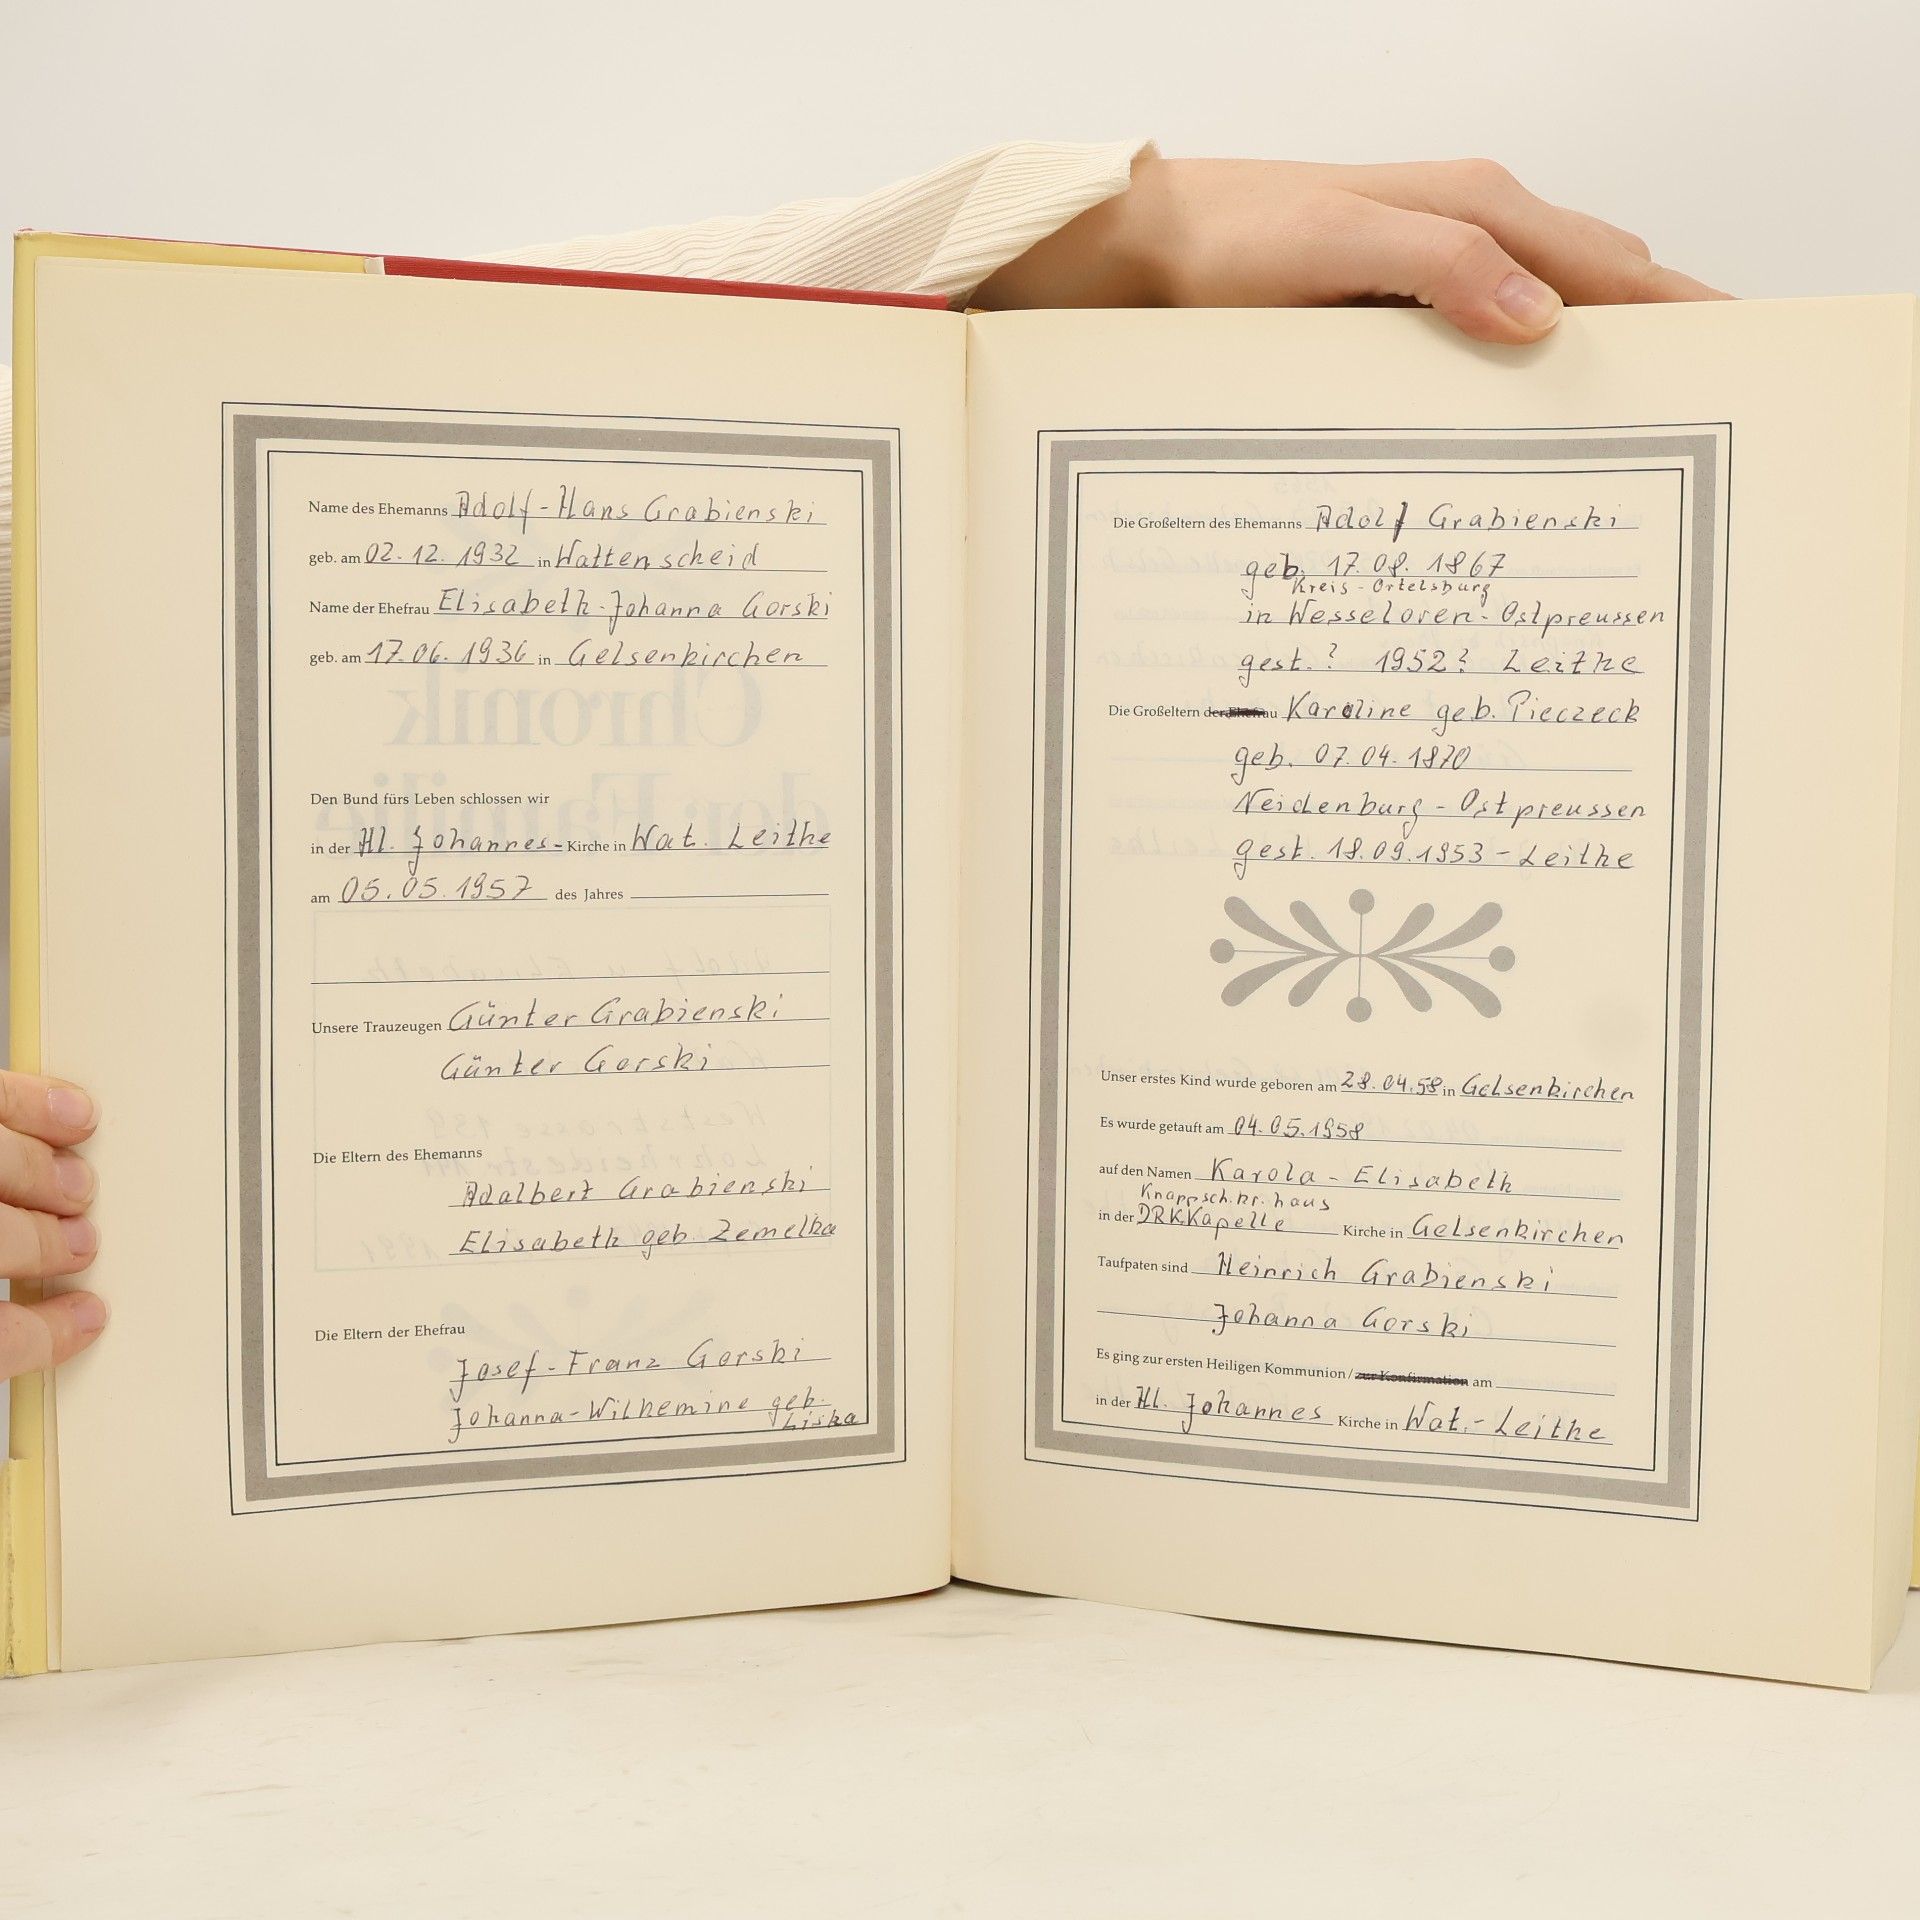 Name des Ehemanns Adolf-Hans Grabienski
geb. am 02.12.1932 in Wattenscheid
Name der Ehefrau Elisabeth-Johanna Gorski
geb. am 17.06.1936 in Gelsenkirchen
Chronik
der Familie
Den Bund fürs Leben schlossen wir
in der Hl. Johannes- Kirche in Wat. Leithe
am 05.05.1957 des Jahres
Unsere Trauzeugen Günter Grabienski
Günter Gorski
Die Eltern des Ehemanns
Adalbert Grabienski
Elisabeth geb. Zemelka
Die Eltern der Ehefrau
Josef-Franz Gorski
Johanna-Wilhemine geb.
Liska
Die Großeltern des Ehemanns Adolf Grabienski
geb. 17.08.1867
Kreis-Ortelsburg
in Wesseloven-Ostpreussen
gest. ? 1952? Leithe
Die Großeltern der Ehefrau Karoline geb. Pieczeck
geb. 07.04.1870
Neidenburg-Ostpreussen
gest. 18.09.1953-Leithe
Unser erstes Kind wurde geboren am 28.04.58 in Gelsenkirchen
Es wurde getauft am 04.05.1958
auf den Namen Karola-Elisabeth
Knappsch.kr.haus
in der DRKKapelle Kirche in Gelsenkirchen
Taufpaten sind Heinrich Grabienski
Johanna Gorski
Es ging zur ersten Heiligen Kommunion/zur Konfirmation am
in der Hl. Johannes Kirche in Wat.-Leithe